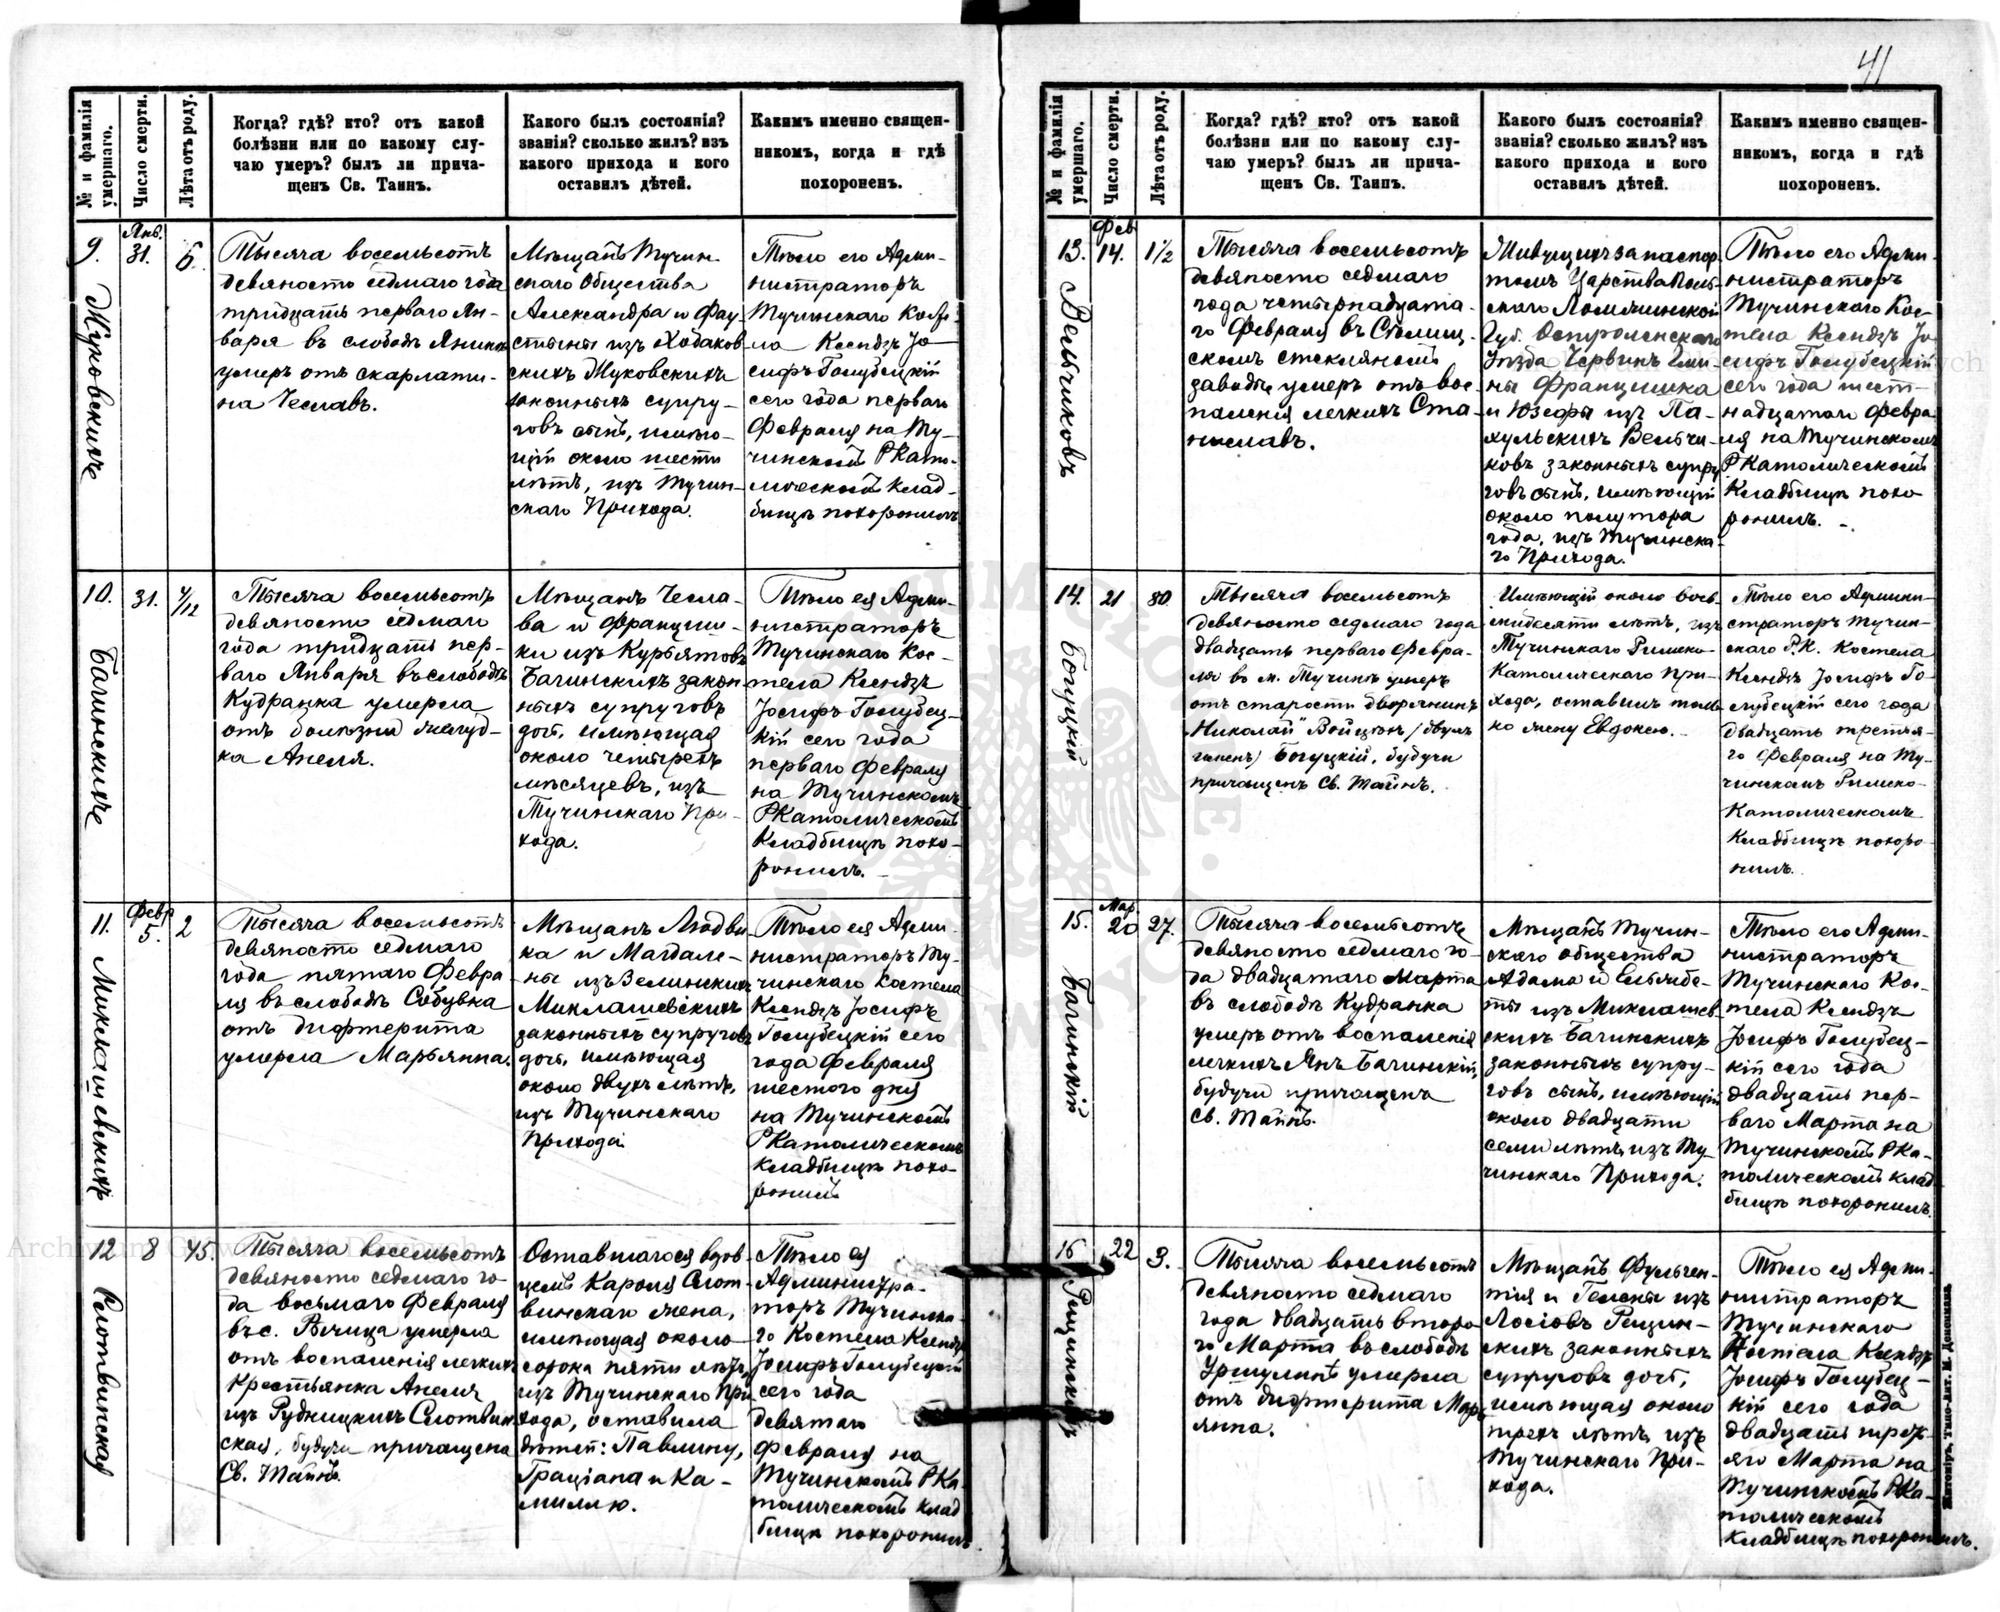 41
№ и фамилія умершаго.
Число смерти.
Лѣта отъ роду.
Когда? гдѣ? кто? отъ какой
болѣзни или по какому слу-
чаю умеръ? былъ ли прича-
щенъ Св. Таинъ.
Какого былъ состоянія?
званія? сколько жилъ? изъ
какого прихода и кого
оставилъ дѣтей.
Какимъ именно священ-
никомъ, когда и гдѣ
похороненъ.
9.
Жуковскихъ
Янв.
31.
6.
Тысяча восемьсотъ
девяносто седмаго года
тридцать перваго Ян-
варя въ слободѣ Янинка
умеръ отъ скарлати-
на Чеславъ.
Мѣщанъ Тучин-
скаго Общества
Александра и Фау-
стыны изъ Ходаков-
скихъ Жуковскихъ
законныхъ супру-
говъ сынъ, имѣю-
щій около шести
лѣтъ, изъ Тучин-
скаго Прихода.
Тѣло его Адми-
нистраторъ
Тучинскаго Косте-
ла Ксендзъ Іо-
сифъ Голубецкій
сего года перваго
Февраля на Ту-
чинскомъ РКато-
лическомъ клад-
бищѣ похоронилъ
10.
Багинскихъ
31.
4/12
Тысяча восемьсотъ
девяносто седмаго
года тридцать пер-
ваго Января въ слободѣ
Кудранка умерла
отъ болѣзни желуд-
ка Анеля.
Мѣщанъ Чесла-
ва и Франциш-
ки изъ Курьятовъ
Багинскихъ закон-
ныхъ супруговъ
доч, имѣющая
около четырехъ
мѣсяцевъ, изъ
Тучинскаго При-
хода.
Тѣло ея Адми-
нистраторъ
Тучинскаго Кос-
тела Ксендзъ
Іосифъ Голубец-
кій сего года
перваго Февраля
на Тучинскомъ
РКатолическомъ
Кладбищѣ похо-
ронилъ.
11.
Миклашевскихъ
Февр
5.
2
Тысяча восемьсотъ
девяносто седмаго
года пятаго Февра
ля въ слободѣ Собувка
отъ дифтерита
умерла Марьянна.
Мѣщанъ Людви
ка и Магдале-
ны изъ Зелинскихъ
Миклашевскихъ
законныхъ супруговъ
доч, имѣющая
около двухъ лѣтъ,
изъ Тучинскаго
Прихода
Тѣло ея Адми-
нистраторъ Ту-
чинскаго Костела
Ксендзъ Іосифъ
Голубецкій сего
года Февраля
шестого дня
на Тучинскомъ
РКатолическомъ
кладбищѣ похо-
ронилъ
12
Слотвинская
8
45.
Тысяча восемьсотъ
девяносто седмаго го-
да восьмаго Февраля
въ с. Рѣчица умерла
отъ воспаленія легкихъ
Крестьянка Анеля
изъ Рудницкихъ Слотвин
ская, будучи причащена
Св. Тайнъ.
Оставшагося вдов-
цемъ Кароля Слот-
винскаго жена,
имѣющая около
сорока пяти лѣтъ,
изъ Тучинскаго При
хода, оставила
дѣтей: Павлину,
Граціана и Ка-
миллю.
Тѣло ея
Администра-
торъ Тучинска-
го Костела Ксендзъ
Іосифъ Голубецкій
сего года
девятаго
Февраля на
Тучинскомъ РКа-
толическомъ клад
бищѣ похоронилъ.
№ и фамилія умершаго.
Число смерти.
Лѣта отъ роду.
Когда? гдѣ? кто? отъ какой
болѣзни или по какому слу-
чаю умеръ? былъ ли прича-
щенъ Св. Таинъ.
Какого былъ состоянія?
званія? сколько жилъ? изъ
какого прихода и кого
оставилъ дѣтей.
Какимъ именно священ-
никомъ, когда и гдѣ
похороненъ.
13.
Вельчиковъ
Фев
14.
1½
Тысяча восемьсотъ
девяносто седмаго
года четырнадцата-
го Февраля въ Сѣлищ-
скомъ стеклянномъ
заводѣ умеръ отъ вос-
паленія легкихъ Ста-
ниславъ.
Живущихъ за паспор-
томъ Царства Поль-
скаго Ломжинской
Губ. Остроленскаго
Уѣзда Червинъ Гми-
ны Францишка
и Юзефы изъ Па-
хульскихъ Вельчи-
ковъ законныхъ супру
говъ сынъ, имѣющій
около полутора
года, изъ Тучинска-
го Прихода.
Тѣло его Адми-
нистраторъ
Тучинскаго Кос-
тела Ксендзъ Іо-
сифъ Голубецкій
сего года шест-
надцатаго Февра
ля на Тучинскомъ
РКатолическомъ
Кладбищѣ похо
ронилъ.
14.
Богуцкій
21
80.
Тысяча восемьсотъ
девяносто седмаго года
двадцать перваго Февра-
ля въ м. Тучинѣ умеръ
отъ старости дворянинъ
Николай Войцѣхъ (двухъ
именъ) Богуцкій, будучи
причащенъ Св. Тайнъ.
Имѣющій около вось-
мидесяти лѣтъ, изъ
Тучинскаго Римско-
Католическаго При-
хода, оставилъ толь-
ко жену Евдокею.
Тѣло его Админи-
страторъ Тучин-
скаго Р.К. Костела
Ксендзъ Іосифъ Го-
лубецкій сего года
двадцать третья-
го Февраля на Ту-
чинскомъ Римско-
Католическомъ
Кладбищѣ похоро-
нилъ.
15.
Багинскій
Мар.
20
27.
Тысяча восемьсотъ
девяносто седмаго го-
да двадцатаго Марта
въ слободѣ Кудранка
умеръ отъ воспаленія
легкихъ Янъ Багинскій,
будучи причащенъ
Св. Тайнъ.
Мѣщанъ Тучин-
скаго общества
Адама и Ельжбе-
ты изъ Миклашев
скихъ Багинскихъ
законныхъ супру-
говъ сынъ, имѣющій
около двадцати
семи лѣтъ, изъ Ту-
чинскаго Прихода.
Тѣло его Адми-
нистраторъ
Тучинскаго Кос-
тела Ксендзъ
Іосифъ Голубец-
кій сего года
двадцать пер-
ваго Марта на
Тучинскомъ РКа-
толическомъ клад
бищѣ похоронилъ.
16
Рещинскихъ
22
3.
Тысяча восемьсотъ
девяносто седмаго
года двадцать второ
го Марта въ слободѣ
Уршулинъ умерла
отъ дифтерита Марь
янна.
Мѣщанъ Фульген-
тія и Гелены изъ
Лосіовъ Рещин-
скихъ законныхъ
супруговъ доч,
имѣющая около
трехъ лѣтъ, изъ
Тучинскаго При-
хода.
Тѣло ея Адми-
нистраторъ
Тучинскаго
Костела Ксендзъ
Іосифъ Голубец-
кій сего года
двадцать треть-
яго Марта на
Тучинскомъ РКа-
толическомъ
кладбищѣ похоронилъ.
Житоміръ, Типо-Лит. М. Дененмана.